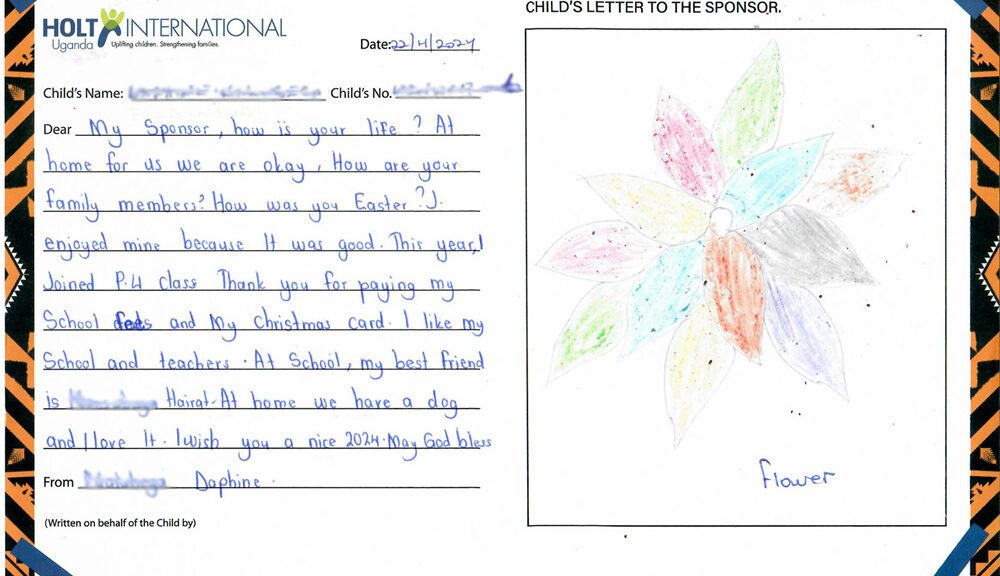 HOLT INTERNATIONAL
Uganda Uplifting children. Strengthening families.
Date: 22/4/2024
Child's Name: Child's No.
Dear My Sponsor, how is your life? At
home for us we are okay, How are your
family members? How was you Easter? I.
enjoyed mine because It was good. This year, I
Joined P.4 class Thank you for paying my
School fees and My christmas card. I like my
School and teachers. At School, my best friend
is Hairat. At home we have a dog
and I love It. I wish you a nice 2024. May God bless
From Daphine.
(Written on behalf of the Child by)
CHILD'S LETTER TO THE SPONSOR.
flower